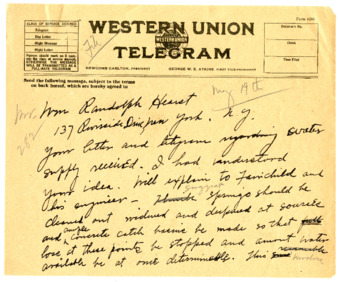 Form 1220
CLASS OF SERVICE DESIRED
Telegram
Day Letter
Night Message
Night Letter
WESTERN UNION
WESTERN UNION
TELEGRAM
NEWCOMB CARLTON, PRESIDENT GEORGE W. E. ATKINS, FIRST VICE-PRESIDENT
Receiver's No.
Check
Time Filed
Send the following message, subject to the terms
on back hereof, which are hereby agreed to
May 19th
Mr. Wm Randolph Hearst
137 Riverside Drive, New York. N.Y.
Your letter and telegram regarding water
supply received. I had understood
your idea. Will explain to Fairchild and
his engineer - suggest springs should be
cleaned out widened and deepened at source
and ample concrete catch basins be made so that
lose at these points be stopped and amount water
available be at once determinable. This
involves